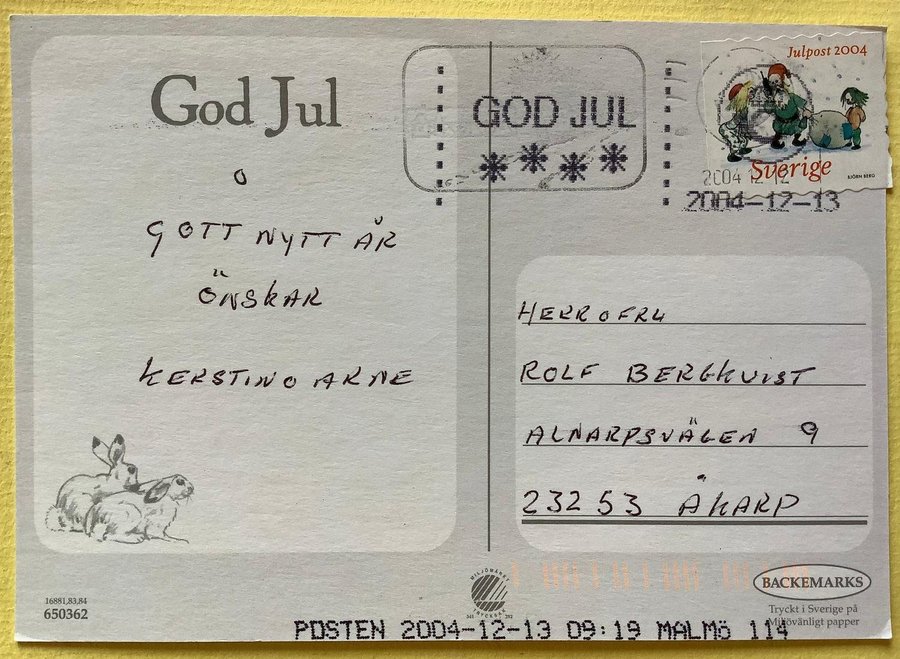 God Jul
O
GOTT NYTT ÅR
ÖNSKAR
KERSTIN O ARNE
16881,83,84
650362
GOD JUL
****
Julpost 2004
Sverige
BJÖRN BERG
2004-12-13
HERR O FRU
ROLF BERGKVIST
ALNARPSVÄGEN 9
232 53 ÅKARP
MILJÖMÄRKT
TRYCKSAK
341
BACKEMARKS
Tryckt i Sverige på
Miljövänligt papper
POSTEN 2004-12-13 09:19 MALMÖ 114